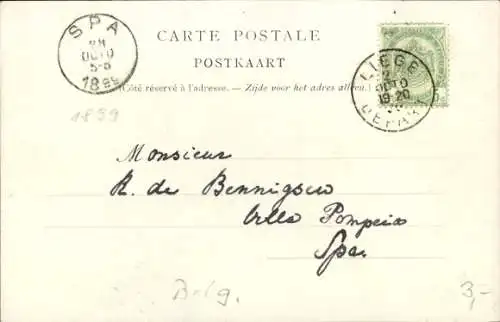 SPA
OCTO
5-6
1899
CARTE POSTALE
POSTKAART
(Côté réservé à l'adresse. — Zijde voor het adres alleen.)
LIEGE
OCTO
19-20
DEPART
1899
Monsieur
R. de Bennigsen
Villa Pompeia
Spa.
Belg.
3,-